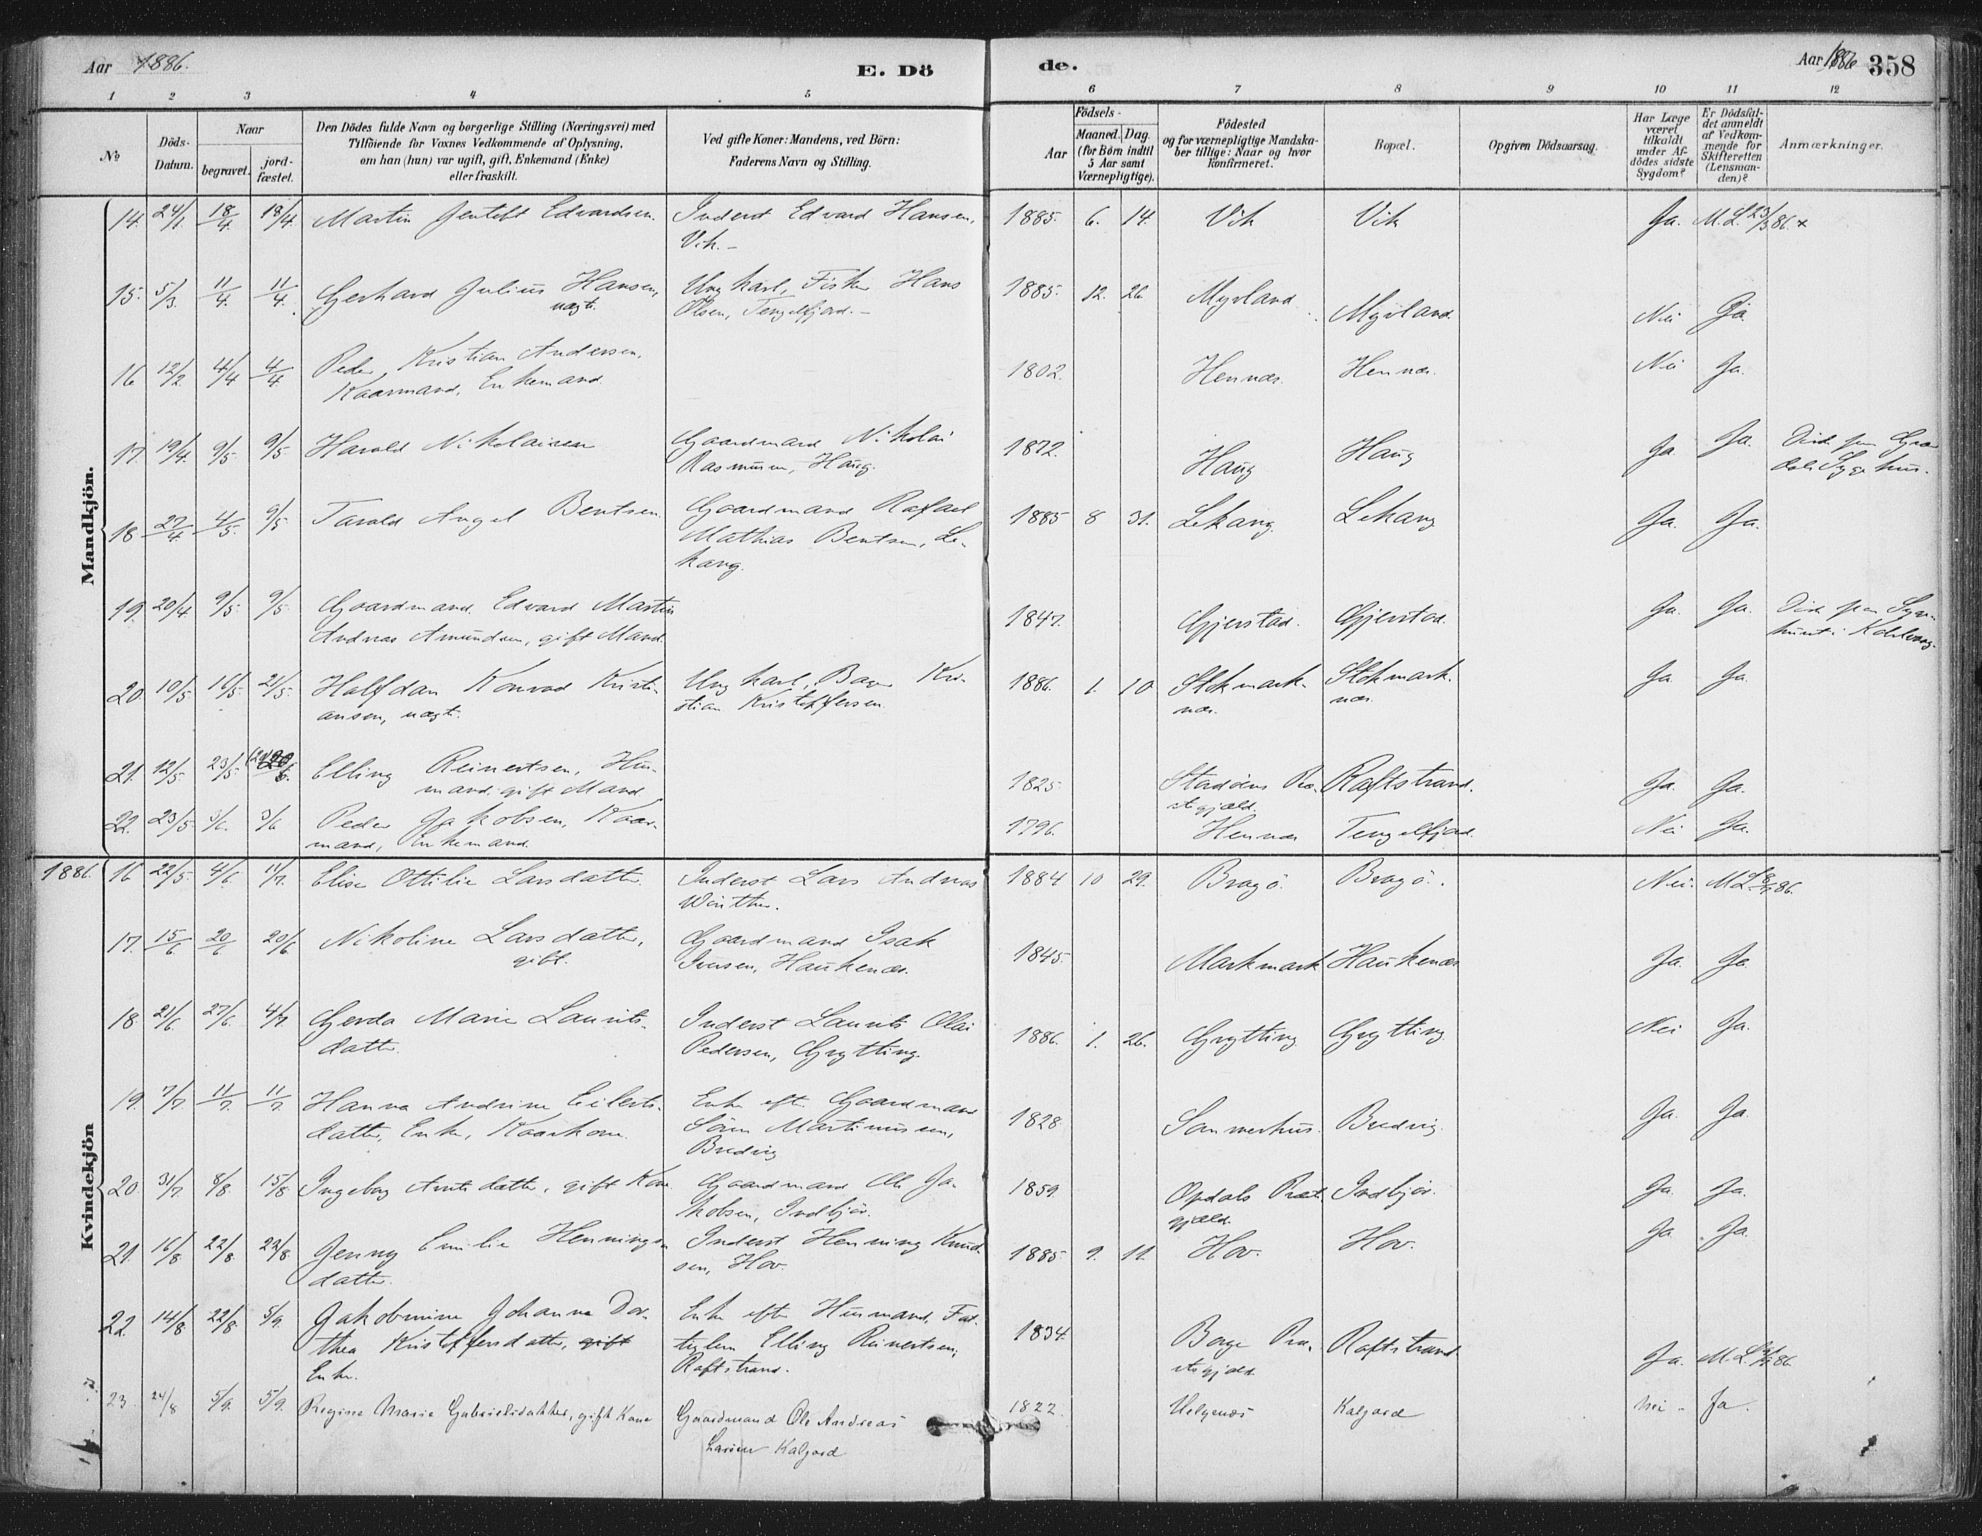 Aar 1886.
E. Dö
de.
Aar 1886
358
1 2 3 4 5 6 7 8 9 10 11 12
No
Döds-
Datum.
Naar
begravet.
jord-
fæstet.
Den Dödes fulde Navn og borgerlige Stilling (Næringsvei) med
Tilföiende for Voxnes Vedkommende af Oplysning,
om han (hun) var ugift, gift, Enkemand (Enke)
eller fraskilt.
Ved gifte Koner: Mandens, ved Börn:
Faderens Navn og Stilling.
Födsels-
Aar
Maaned.
Dag.
(for Börn indtil
5 Aar samt
Værnepligtige).
Födested
og for værnepligtige Mandska-
ber tillige: Naar og hvor
konfirmeret.
Bopæl.
Opgiven Dödsaarsag.
Har Læge
været
tilkaldt
under Af-
dödes sidste
Sygdom?
Er Dödsfal-
det anmeldt
af Vedkom-
mende for
Skifteretten
(Lensman-
den)?
Anmærkninger.
Mandkjön.
14. 24/1. 18/4 18/4. Martin Jentoft Edvardsen. Inderst Edvard Hansen, 1885. 6. 14. Vik Vik Ja. M. L. 23/3 86. +
Vik. –
15. 5/3. 11/4. 11/4. Gerhard Julius Hansen, Ungkarl, Fisker Hans 1885. 12. 26. Myrland Myrland. Nei Ja.
uægte. Olsen, Tengelfjord. –
16 12/2 4/4 4/4 Peder Kristian Andersen, 1802. Hennæs. Hennæs. Nei Ja.
Kaarmand, Enkemand.
17. 19/4. 9/5. 9/5 Harald Nikolaisen Gaardmand Nikolai 1872. Haug Haug Ja Ja.
Rasmusen, Haug.
18 27/4 4/5. 9/5 Tarald Angel Bentsen. Gaardmand Rafael 1885 8 31. Lekang. Lekang Ja. Ja.
Mathias Bentsen, Le-
kang.
19. 20/4 9/5 9/5 Gaardmand Edvard Martin 1847. Gjerstad. Gjerstad. Ja. Ja.
Andreas Amundsen, gift Mand.
20 10/5 16/5 21/5. Halfdan Konrad Kristi- Ungkarl, Bager Kri- 1886. 1. 10 Stokmark- Stokmark- Ja. Ja.
ansen, uægte. stian Kristoffersen næs. næs.
21. 12/5. 23/5. Elling Reinertsen, Hus- 1825. Raftstrand. Ja. Ja.
mand, gift Mand
22. 23/5 3/6. 3/6 Peder Jakobsen, Kaar- 1796. Hennæs Tengelfjord. Nei Ja.
mand, Enkemand.
Kvindekjön
1886. 16 22/5 4/6 11/7. Elise Ottilie Larsdatter. Inderst Lars Andreas 1884 10 29. Bragö. Bragö. Nei. M. L. 8/7 86.
Winther.
17. 15/6 20/6 20/6 Nikoline Larsdatter, Gaardmand Isak 1845. Markmark Haukenæs Ja. Ja.
gift. Iversen, Haukenæs.
18 21/6 27/6. 4/7. Gerda Marie Laurits- Inderst Laurits Olai 1886. 1. 26. Grytting Grytting Nei Ja.
datter. Pedersen, Grytting.
19. 7/7 11/7. 11/7 Hanna Andrine Eilerts- Enke efter Gaardmand 1828 Sommerhus. Bredvig. Ja. Ja.
datter, Enke, Kaarkone. Sören Martinusen,
Bredvig
20 31/7. 8/8 15/8 Ingeborg Arntsdatter, gift Kone Gaardmand Ole Ja- 1859. Opdals Præst- Indbjör. Ja. Ja.
kobsen, Indbjör. gjæld.
21. 16/8 22/8 22/8 Jenny Emilie Hennings- Inderst Henning Knud- 1885 9. 11. Hov. Hov. Ja. Ja.
datter. sen, Hov.
22. 14/8 22/8 5/9. Jakobmine Johanna Dor- Enke efter Husmand, Fat- 1834. Borge Præ- Raftstrand. Ja. M. L. 86.
thea Kristoffersdatter, gift tiglem Elling Reinertsen, stegjæld.
Enke. Raftstrand.
23 24/8 5/9. 5/9. Regine Marie Gabrielsdatter, gift Kone Gaardmand Ole Andreas 1822. Helgenæs Kalgard Nei – Ja.
Larsen Kalgard